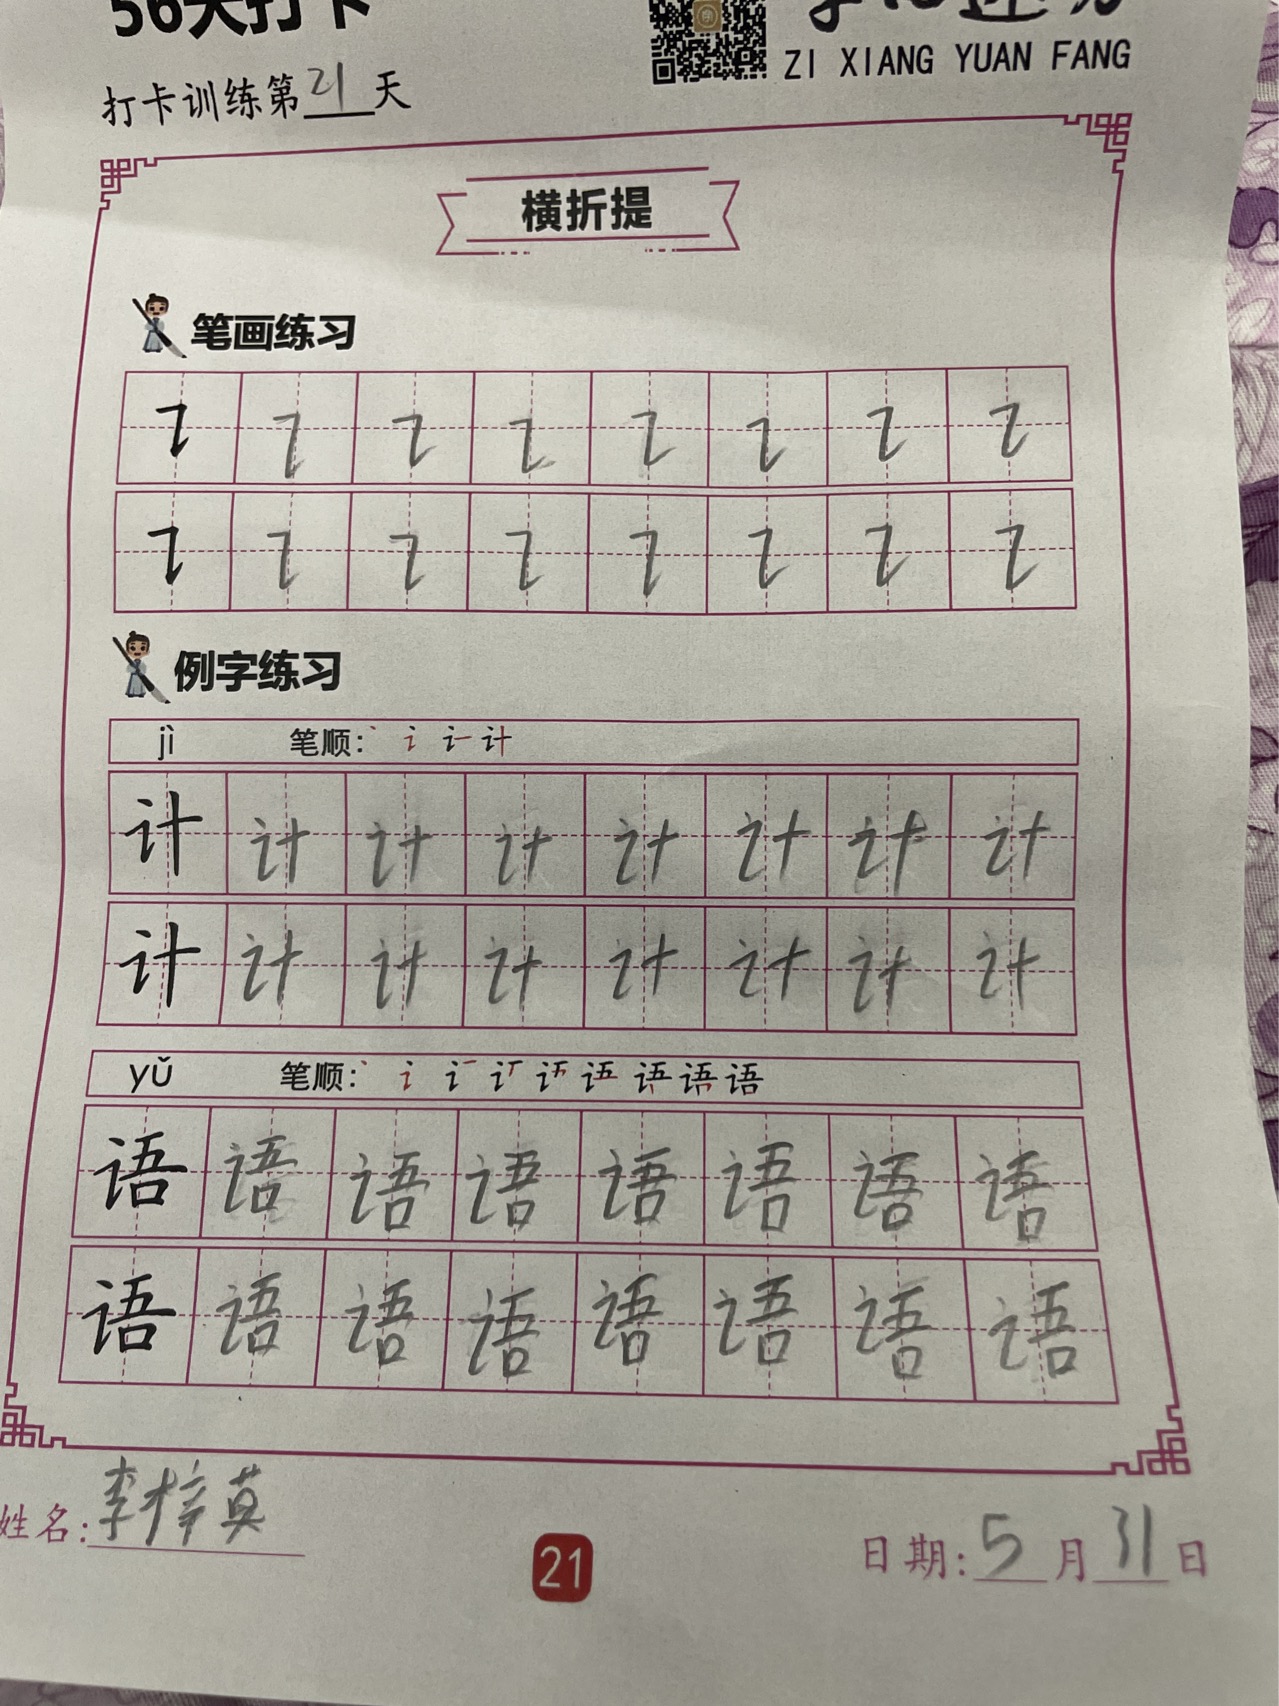 56天打卡
ZI XIANG YUAN FANG
打卡训练第21天
横折提
笔画练习
例字练习
jì 笔顺:
计 计 计 计 计 计 计 计
计 计 计 计 计 计 计 计
yǔ 笔顺:
语 语 语 语 语 语 语 语
语 语 语 语 语 语 语 语
姓名:李梓萸
21
日期:5月31日